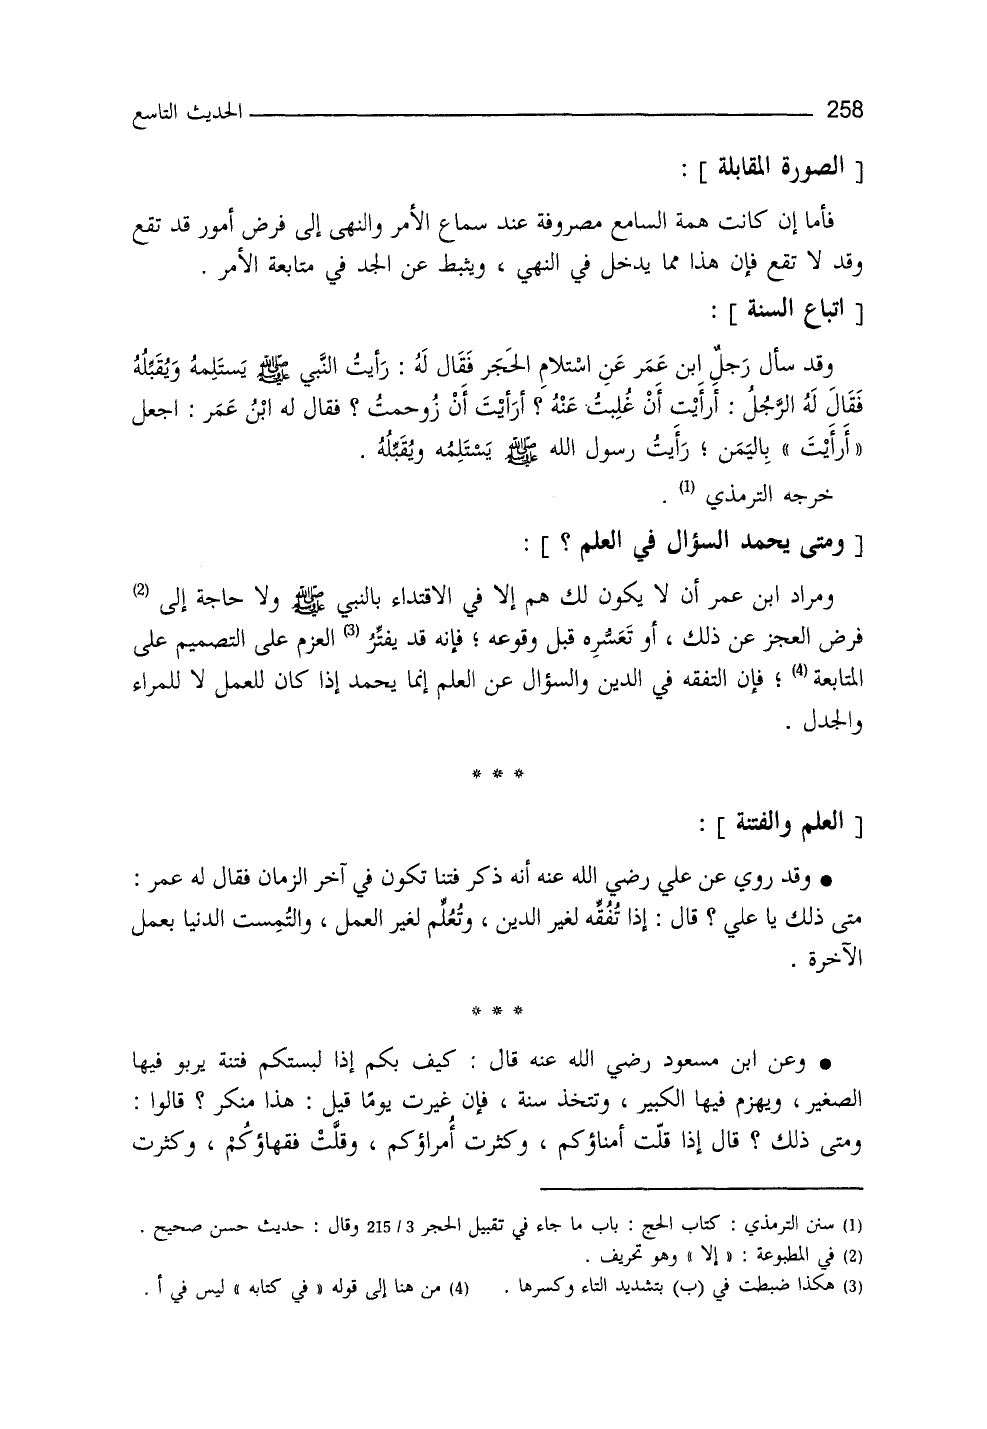 258 الحديث التاسع
[ الصورة المقابلة ] :
فأما إن كانت همة السامع مصروفة عند سماع الأمر والنهى إلى فرض أمور قد تقع
وقد لا تقع فإن هذا مما يدخل في النهي ، ويثبط عن الجد في متابعة الأمر .
[ اتباع السنة ] :
وقد سأل رَجلٌ ابن عَمَر عَنِ اسْتلامِ الحَجَر فَقَال لَهُ : رَأيتُ النَّبي ﷺ يَستَلِمهُ وَيُقَبِّلُهُ
فَقَالَ لَهُ الرَّجُلُ : أَرأَيْت أَنْ غُلِبتُ عَنْهُ ؟ أَرَأيْتَ أَنْ زُوحمتُ ؟ فقال له ابْنُ عَمَر : اجعل
« أَرأَيْتَ » بِاليَمَن ؛ رَأَيتُ رسول الله ﷺ يَسْتَلِمُه ويُقَبِّلُهُ .
خرجه الترمذي (1) .
[ ومتى يحمد السؤال في العلم ؟ ] :
ومراد ابن عمر أن لا يكون لك هم إلا في الاقتداء بالنبي ﷺ ولا حاجة إلى (2)
فرض العجز عن ذلك ، أو تَعَسُّرِه قبل وقوعه ؛ فإنه قد يفتِّرُ (3) العزم على التصميم على
المتابعة (4) ؛ فإن التفقه في الدين والسؤال عن العلم إنما يحمد إذا كان للعمل لا للمراء
والجدل .
* * *
[ العلم والفتنة ] :
● وقد روي عن علي رضي الله عنه أنه ذكر فتنا تكون في آخر الزمان فقال له عمر :
متى ذلك يا علي ؟ قال : إذا تُفُقِّه لغير الدين ، وتُعُلِّم لغير العمل ، والتُمِست الدنيا بعمل
الآخرة .
* * *
● وعن ابن مسعود رضي الله عنه قال : كيف بكم إذا لبستكم فتنة يربو فيها
الصغير ، ويهزم فيها الكبير ، وتتخذ سنة ، فإن غيرت يومًا قيل : هذا منكر ؟ قالوا :
ومتى ذلك ؟ قال إذا قلّت أمناؤكم ، وكثرت أُمراؤكم ، وقلَّتْ فقهاؤكُمْ ، وكثرت
(1) سنن الترمذي : كتاب الحج : باب ما جاء في تقبيل الحجر 3 / 215 وقال : حديث حسن صحيح .
(2) في المطبوعة : « إلا » وهو تحريف .
(3) هكذا ضبطت في (ب) بتشديد التاء وكسرها . (4) من هنا إلى قوله « في كتابه » ليس في أ .